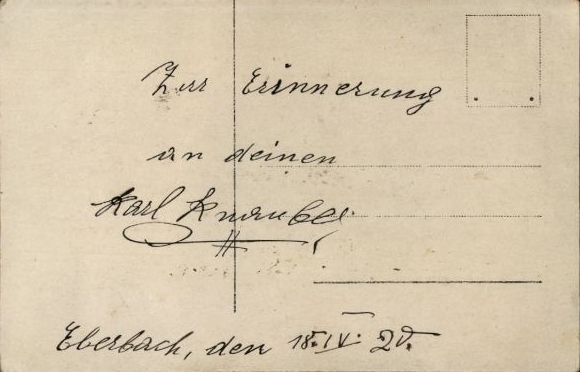 Zur Erinnerung
an deinen
Karl Knaubel
Eberbach, den 18.IV. 20.